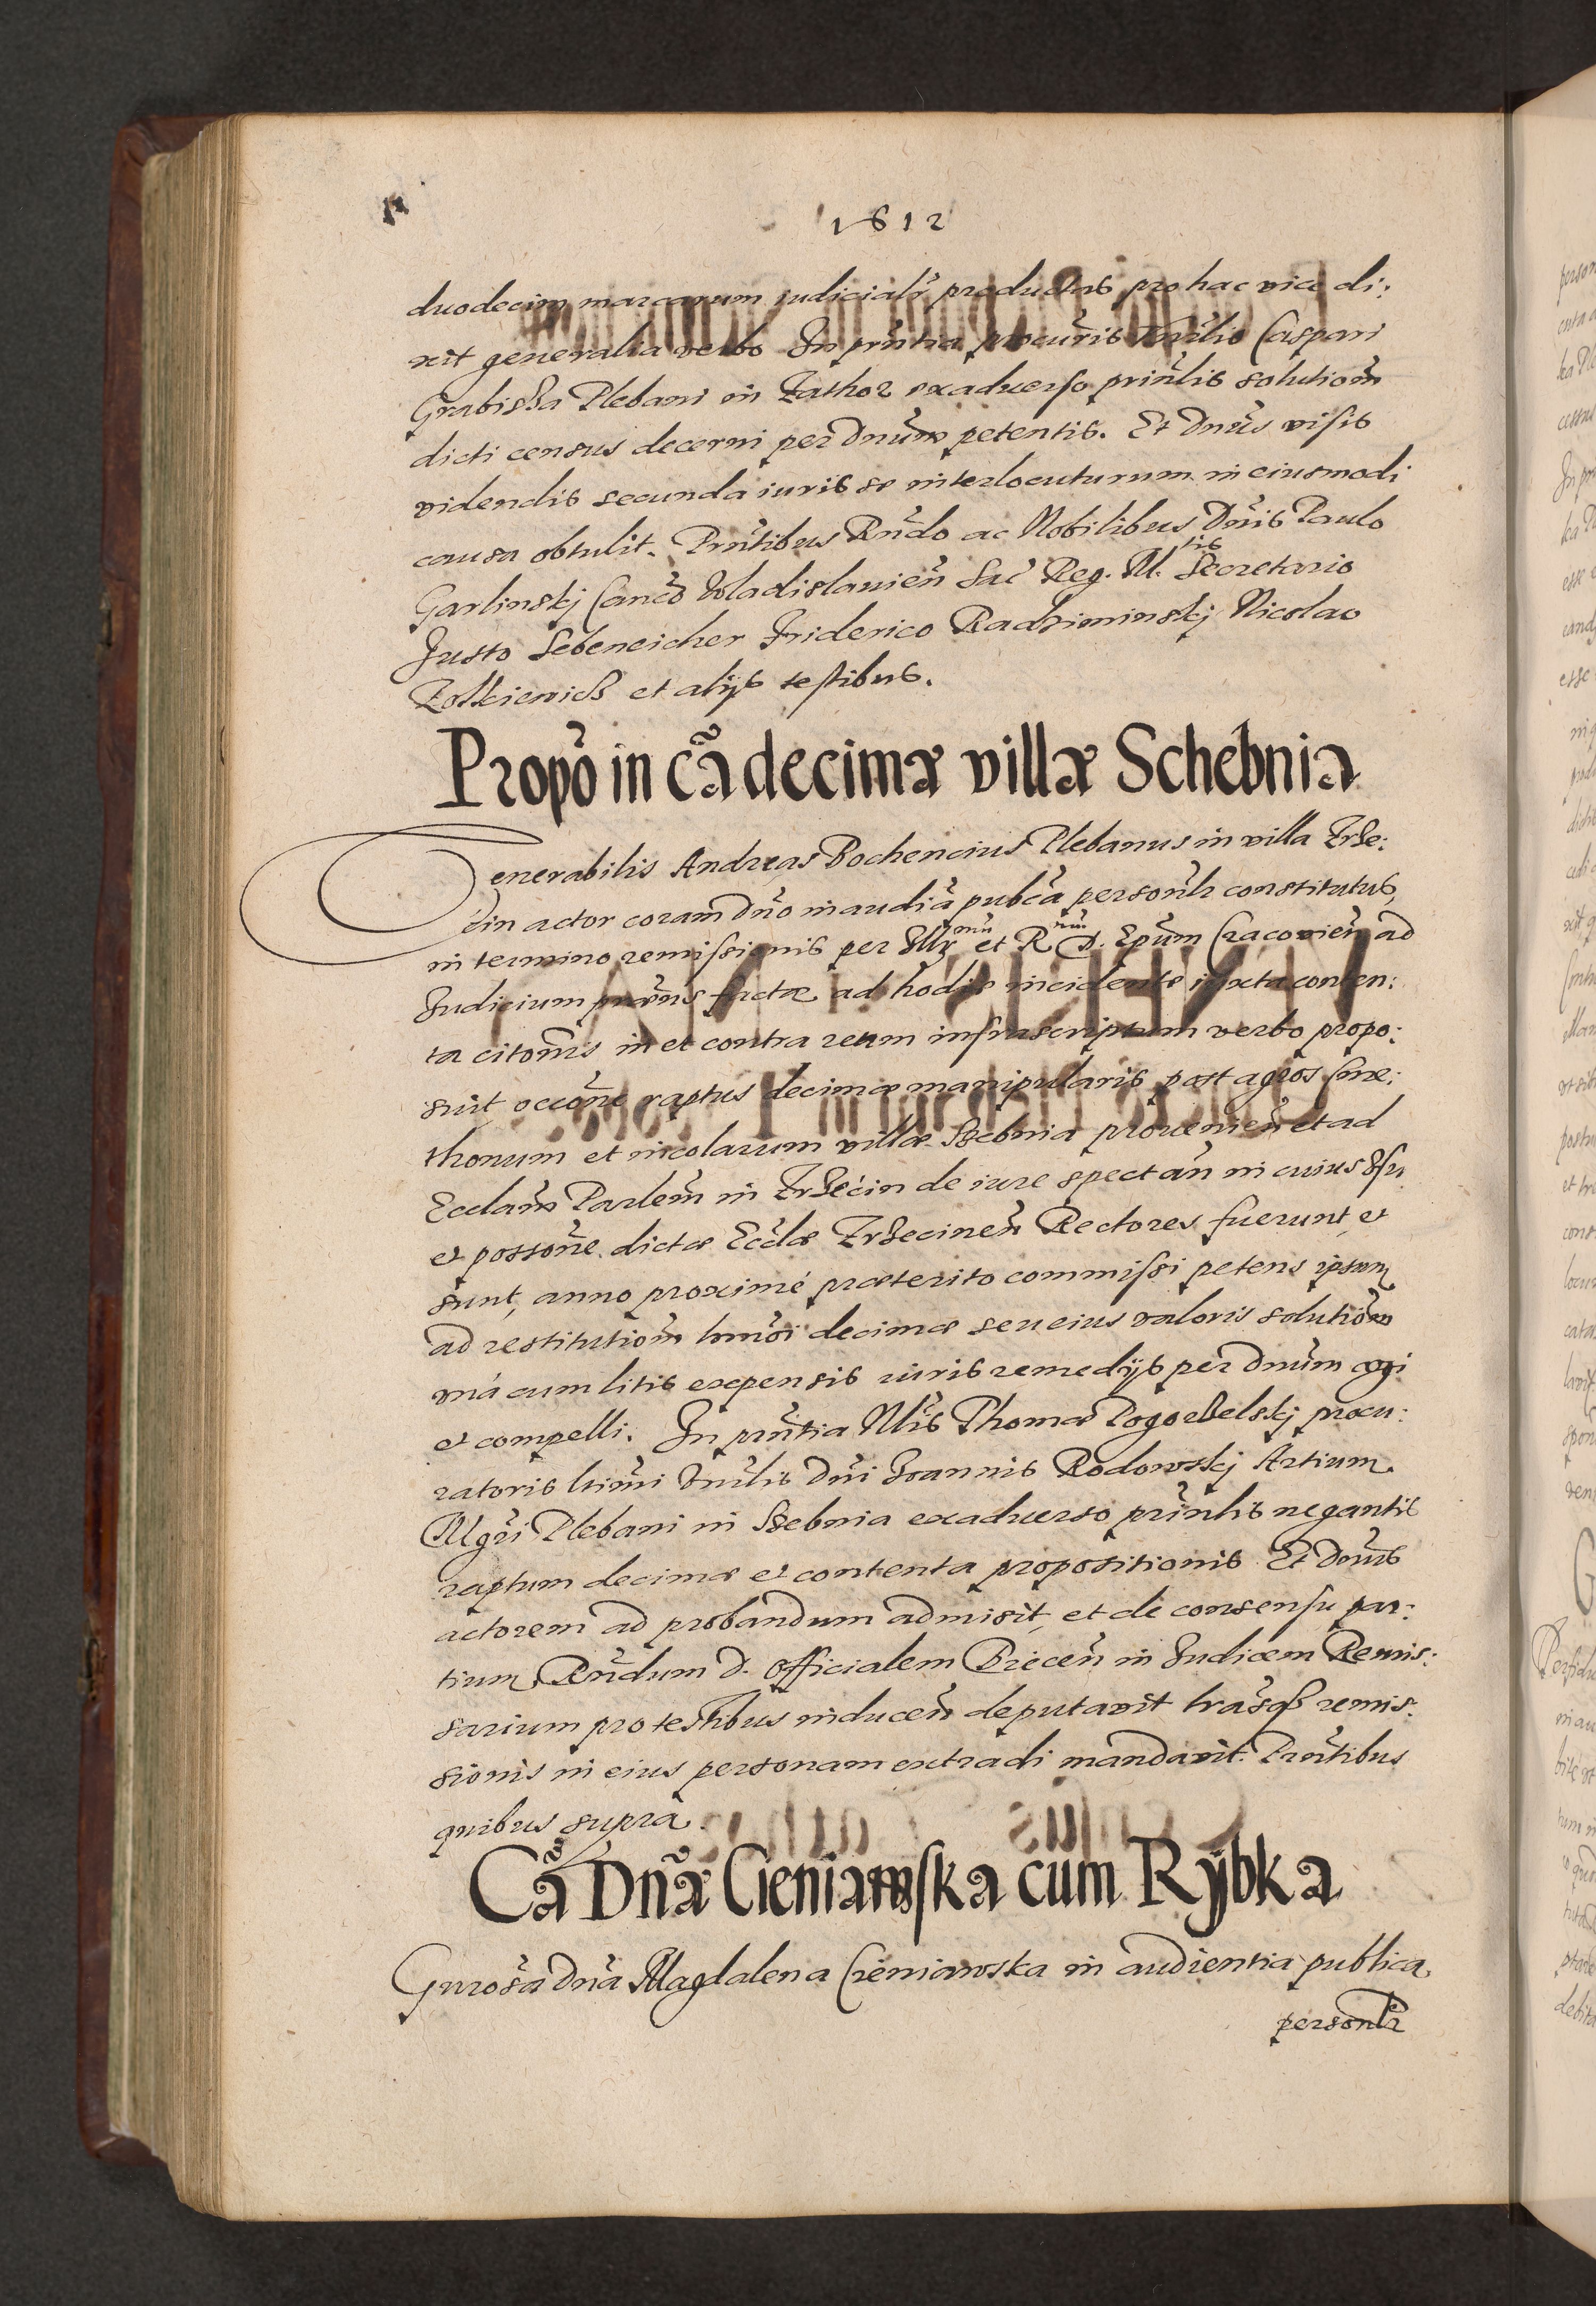 1612
duodecim marcarum judiciali͂ productas pro hac vice di:
xit generalia verbo In pn͂tia procuris Vn͂ilis Caspari
Grabissa Plebani in Zathor exadverso prin͂lis solutiom̃
dicti census decerni per Dnum̃ petentis. Et Dnus̃ visis
videndis secunda iuris se interlocuturum in eiusmodi
causa obtulit. Pn͂tibus Rn͂do ac Nobilibus Dn͂is Paulo
Garlinskj Canc͂o Wladislavien͂ Sac͂ Reg. M.tis Secretario
Justo Lebeneicher Friderico Radziminskj Nicolao
Zolkiewicz et alijs testibus.
Propo͂ in ca͂ decimæ villæ Schebnia
Venerabilis Andreas Bochencius Plebanus in villa Trze:
cin actor coram Dn͂o in audia͂ pubca͂ person͂lr constitutus,
in termino remissionis per Illr mũ et R mũ D. Epum̃ Cracovien͂ ad
Judicium præns͂ factæ ad hodie incidente iuxta conten:
ta citom̃s in et contra reum infrascriptum verbo propo:
suit, occõne raptus decimæ manipularis post agros Cme:
thonum et incolarum villæ Szebnia provenien͂ et ad
Ecclam̃ Parlem̃ in Trzécin de iure spectan͂ in cuius usu
et possõne dictæ Eccl͂æ Trzecinen͂ Rectores fuerunt, et
sunt, anno proximé præterito commissi petens ipsum
ad restitutiom̃ hmõi decimæ seu eius valoris solutiom̃
vná cum litis expensis iuris remedijs per Dnum̃ cogi
et compelli. In pn͂tia Nl͂is Thomæ Pogorzelskj procu:
ratoris ltimi͂ Vn͂lis Dn͂i Joannis Rodowskj Artium
Mgri͂ Plebani in Szebnia exadverso prin͂lis negantis
raptum decimæ et contenta propositionis. Et Dnus̃
actorem ad probandum admisit, et de consensu par:
tium Rn͂dum D. Officialem Biecen͂ in Judicem Remis:
sarium pro testibus inducen͂ deputavit lras͂qz remis:
sionis in eius personam extradi mandavit. Pn͂tibus
quibus suprà.
Ca͂ Dn͂æ Cieniawska cum Rybka
Gnrosa͂ Dna͂ Magdalena Cieniawska in audientia publica
person͂lr